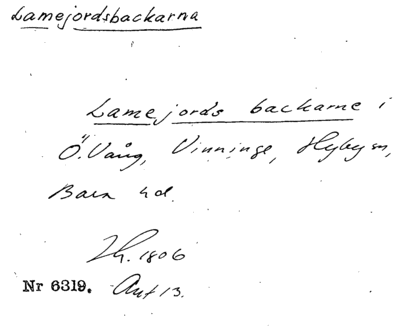 Lamejordsbackarna
Lamejords backarne i
Ö. Vång, Vinninge, Hyby sn,
Bara hd.
Lh. 1806
Nr 6319. Ant 13.